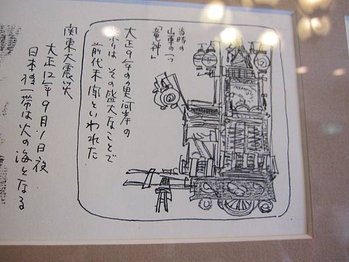 当時の
山車の一つ
「竜神」
大正9年の魚河岸の
祭りは その盛大なことで
前代未聞といわれた
関東大震災
大正12年9月1日夜
日本橋一帯は火の海となる